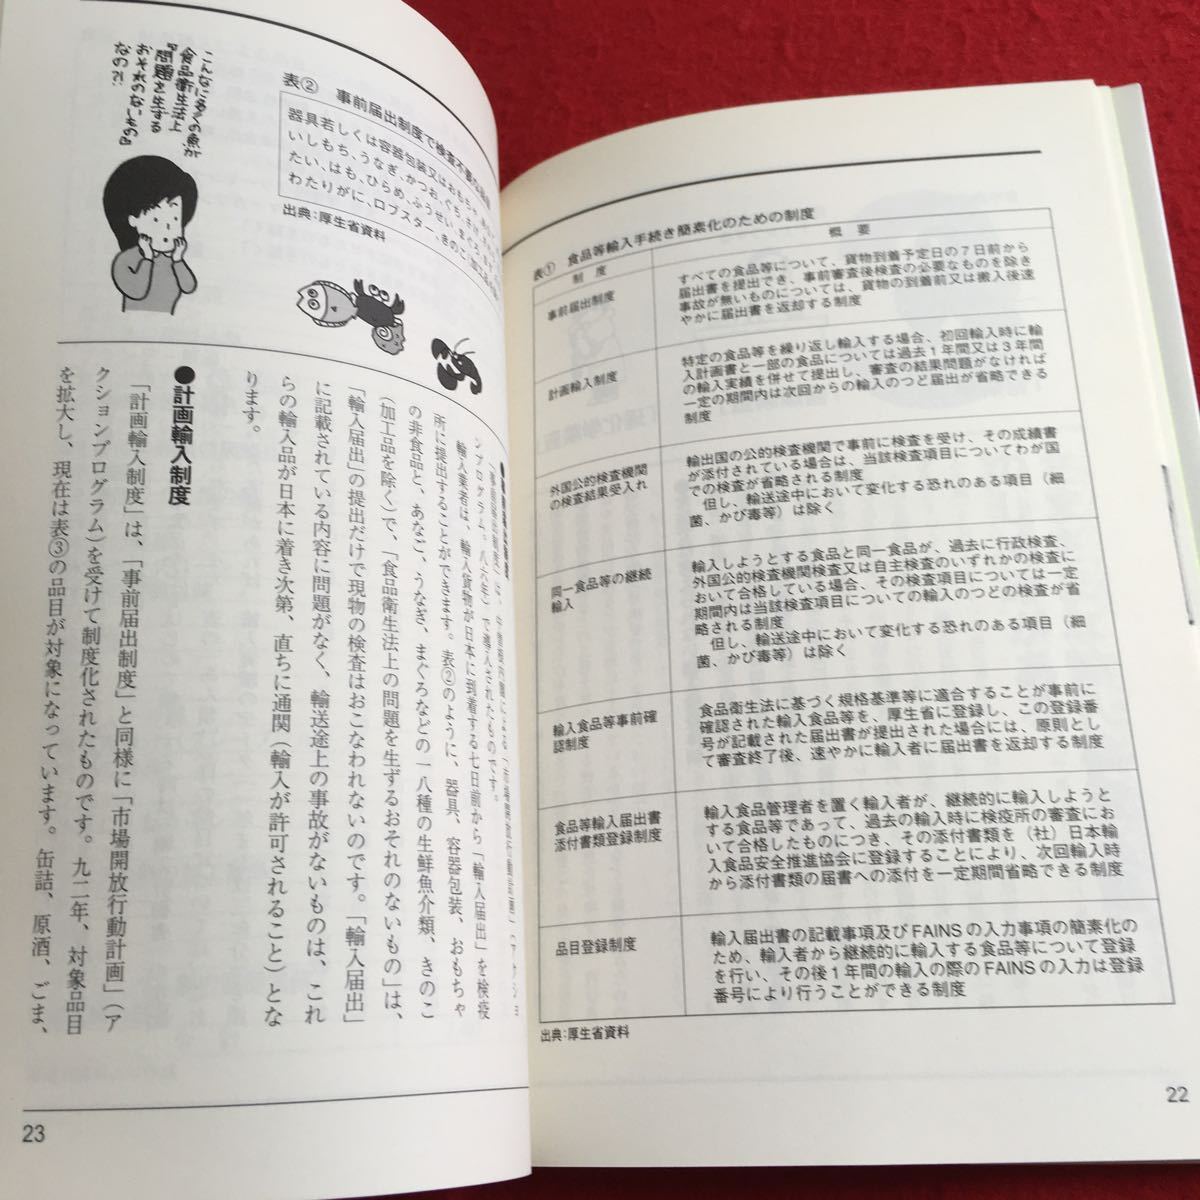 表① 食品等輸入手続き簡素化のための制度
制度
概要
事前届出制度
すべての食品等について、貨物到着予定日の7日前から
届出書を提出でき、事前審査後検査の必要なものを除き
事故が無いものについては、貨物の到着前又は搬入後速
やかに届出書を返却する制度
計画輸入制度
特定の食品等を繰り返し輸入する場合、初回輸入時に輸
入計画書と一部の食品については過去1年間又は3年間
の輸入実績を併せて提出し、審査の結果問題がなければ
一定の期間内は次回からの輸入のつど届出が省略できる
制度
外国公的検査機関
の検査結果受入れ
輸出国の公的検査機関で事前に検査を受け、その成績書
が添付されている場合は、当該検査項目についてわが国
での検査が省略される制度
但し、輸送途中において変化する恐れのある項目(細
菌、かび毒等)は除く
同一食品等の継続
輸入
輸入しようとする食品と同一食品が、過去に行政検査、
外国公的検査機関検査又は自主検査のいずれかの検査に
おいて合格している場合、その検査項目については一定
期間内は当該検査項目についての輸入のつどの検査が省
略される制度
但し、輸送途中において変化する恐れのある項目(細
菌、かび毒等)は除く
輸入食品等事前確
認制度
食品衛生法に基づく規格基準等に適合することが事前に
確認された輸入食品等を、厚生省に登録し、この登録番
号が記載された届出書が提出された場合には、原則とし
て審査終了後、速やかに輸入者に届出書を返却する制度
食品等輸入届出書
添付書類登録制度
輸入食品管理者を置く輸入者が、継続的に輸入しようと
する食品等であって、過去の輸入時に検疫所の審査にお
いて合格したものにつき、その添付書類を(社)日本輸
入食品安全推進協会に登録することにより、次回輸入時
から添付書類の届書への添付を一定期間省略できる制度
品目登録制度
輸入届出書の記載事項及びFAINSの入力事項の簡素化の
ため、輸入者から継続的に輸入する食品等について登録
を行い、その後1年間の輸入の際のFAINSの入力は登録
番号により行うことができる制度
出典:厚生省資料
22
表② 事前届出制度で検査不要な
器具若しくは容器包装又はおもちゃ、
いしもち、うなぎ、かつお、ぐち、さけ、
たい、はも、ひらめ、ふうせい、まぐろ、
わたりがに、ロブスター、きのこ(加工品を除
出典:厚生省資料
こんなに多くの魚が
食品衛生法上
『問題を生ずる
おそれのないもの』
なの?!
ンプログラム。八六年)で導入されたものです。
輸入業者は、輸入貨物が日本に到着する七日前から「輸入届出」を検疫
所に提出することができます。表②のように、器具、容器包装、おもちゃ
の非食品と、あなご、うなぎ、まぐろなどの一八種の生鮮魚介類、きのこ
(加工品を除く)で、「食品衛生法上の問題を生ずるおそれのないもの」は、
「輸入届出」の提出だけで現物の検査はおこなわれないのです。「輸入届出」
に記載されている内容に問題がなく、輸送途上の事故がないものは、これ
らの輸入品が日本に着き次第、直ちに通関(輸入が許可されること)とな
ります。
●計画輸入制度
「計画輸入制度」は、「事前届出制度」と同様に「市場開放行動計画」(ア
クションプログラム)を受けて制度化されたものです。九二年、対象品目
を拡大し、現在は表③の品目が対象になっています。缶詰、原酒、ごま、
23